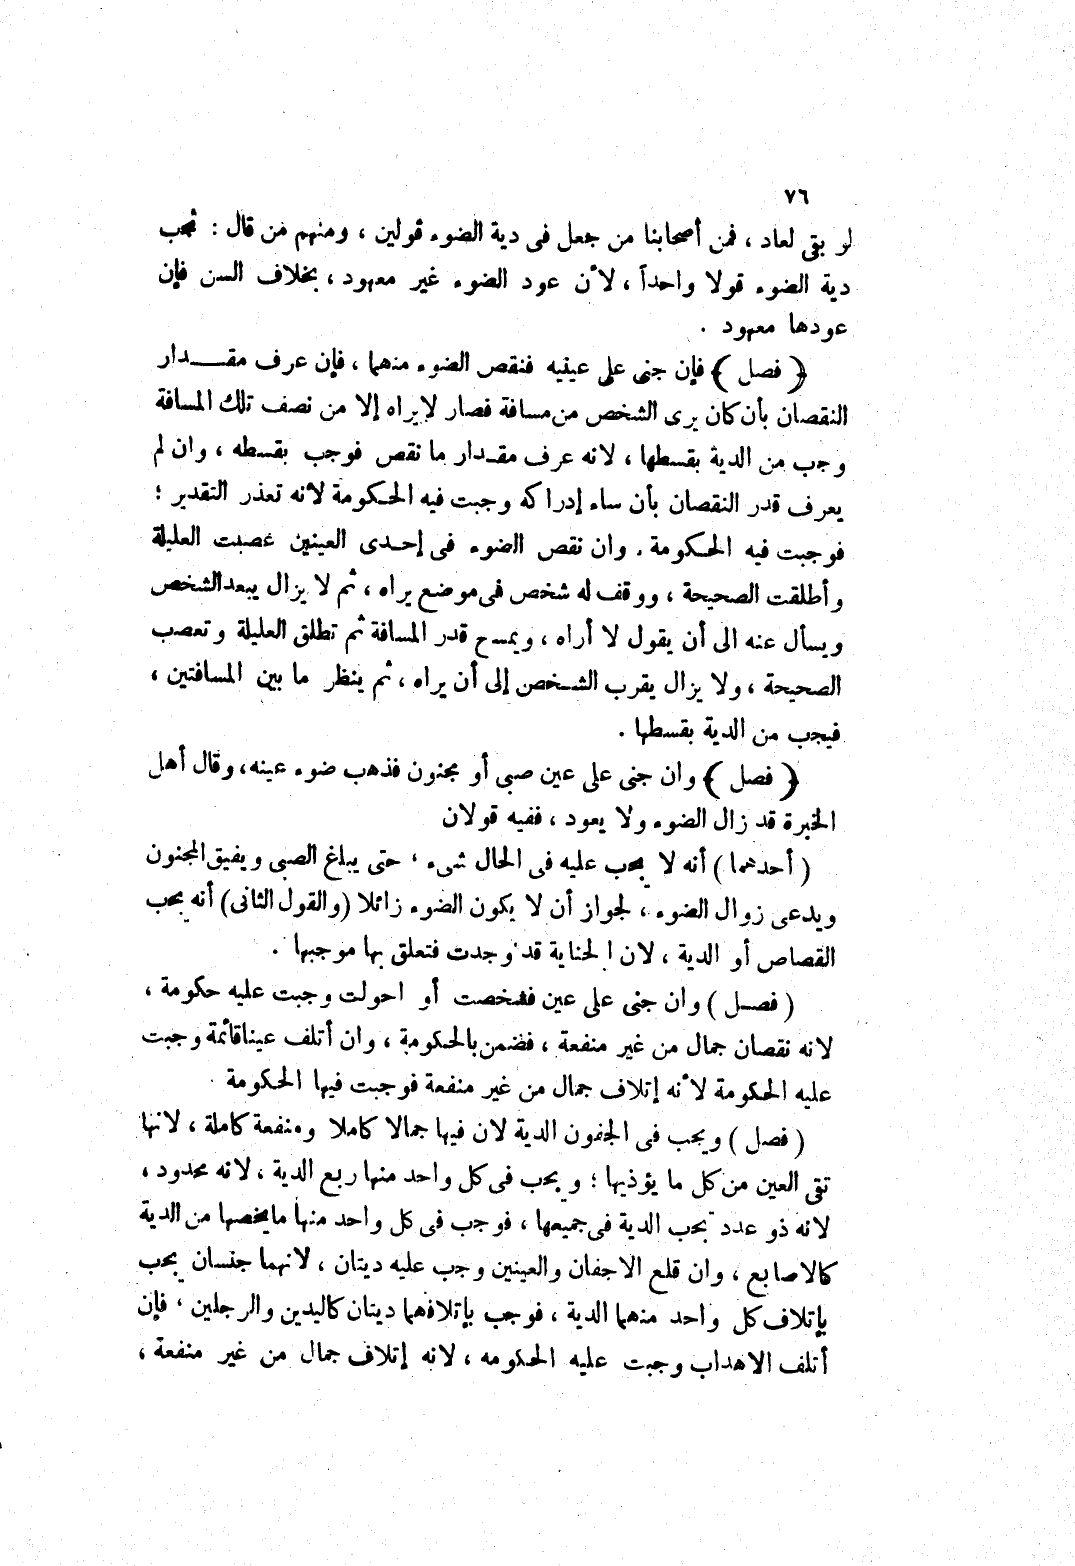 ٧٦
لو بقى لعاد ، فمن أصحابنا من جعل فى دية الضوء قولين ، ومنهم من قال : تجب
دية الضوء قولا واحداً ، لأن عود الضوء غير معهود ، بخلاف السن فإن
عودها معهود .
﴿ فصل ﴾ فإن جنى على عينيه فنقص الضوء منهما ، فإن عرف مقـــدار
النقصان بأن كان يرى الشخص من مسافة فصار لا يراه إلا من نصف تلك المسافة
وجب من الدية بقسطها ، لانه عرف مقـدار ما نقص فوجب بقسطه ، وان لم
يعرف قدر النقصان بأن ساء إدراكه وجبت فيه الحكومة لأنه تعذر التقدير ؛
فوجبت فيه الحكومة . وان نقص الضوء فى إحـدى العينين عصبت العليلة
وأطلقت الصحيحة ، ووقف له شخص فى موضع يراه ، ثم لا يزال يبعد الشخص
ويسأل عنه الى أن يقول لا أراه ، ويمسح قدر المسافة ثم تطلق العليلة وتعصب
الصحيحة ، ولا يزال يقرب الشـخص إلى أن يراه ، ثم ينظر ما بين المسافتين ،
فيجب من الدية بقسطها .
﴿ فصل ﴾ وان جنى على عين صبى أو مجنون فذهب ضوء عينه، وقال أهل
الخبرة قد زال الضوء ولا يعود ، ففيه قولان
( أحدهما ) أنه لا يجب عليه فى الحال شىء ، حتى يبلغ الصبى ويفيق المجنون
ويدعى زوال الضوء ، لجواز أن لا يكون الضوء زائلا (والقول الثانى) أنه يجب
القصاص أو الدية ، لان الجناية قد وجدت فتعلق بها موجبها .
( فصـل ) وان جنى على عين فشخصت أو احولت وجبت عليه حكومة ،
لانه نقصان جمال من غير منفعة ، فضمن بالحكومة ، وان أتلف عينا قائمة وجبت
عليه الحكومة لأنه إتلاف جمال من غير منفعة فوجبت فيها الحكومة .
( فصل ) ويجب فى الجفون الدية لان فيها جمالا كاملا ومنفعة كاملة ، لانها
تقى العين من كل ما يؤذيها ؛ ويجب فى كل واحد منها ربع الدية ، لانه محدود ،
لانه ذو عدد تجب الدية فى جميعها ، فوجب فى كل واحد منها ما يخصها من الدية
كالاصابع ، وان قلع الاجفان والعينين وجب عليه ديتان ، لانهما جنسان يجب
بإتلاف كل واحد منهما الدية ، فوجب بإتلافهما ديتان كاليدين والرجلين ، فإن
أتلف الاهداب وجبت عليه الحكومه ، لانه إتلاف جمال من غير منفعة ،